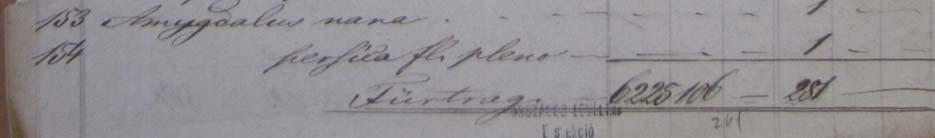 153 Amygdalus nana . - - - - 1 - -
154 persica fl. pleno - - - - 1 - -
Fürtrag. - 6225 106 - 281
ORSZÁGOS LEVÉLTÁR
261